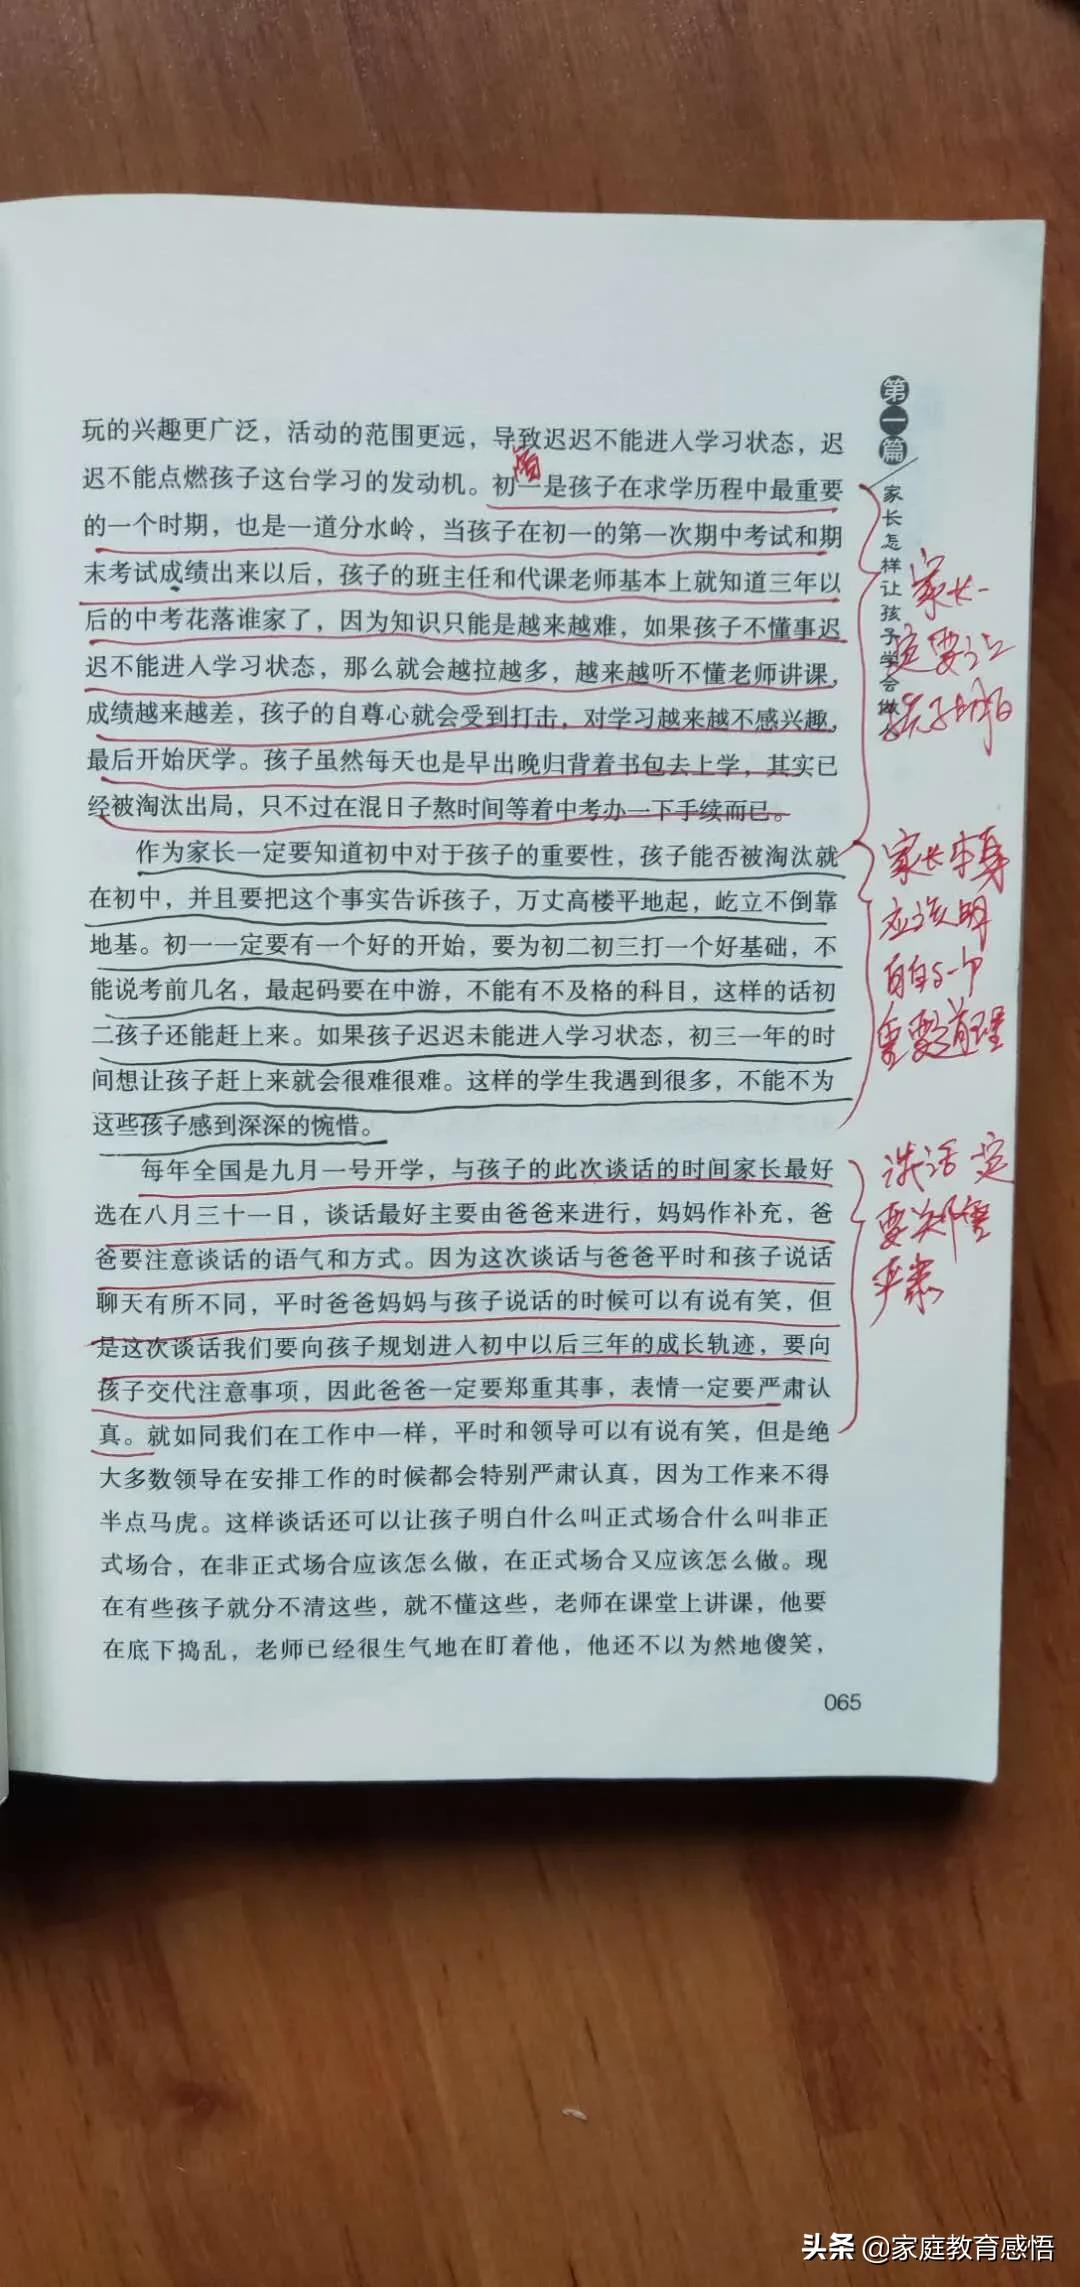 玩的兴趣更广泛，活动的范围更远，导致迟迟不能进入学习状态，迟
迟不能点燃孩子这台学习的发动机。初一是孩子在求学历程中最重要
的一个时期，也是一道分水岭，当孩子在初一的第一次期中考试和期
末考试成绩出来以后，孩子的班主任和代课老师基本上就知道三年以
后的中考花落谁家了，因为知识只能是越来越难，如果孩子不懂事迟
迟不能进入学习状态，那么就会越拉越多，越来越听不懂老师讲课，
成绩越来越差，孩子的自尊心就会受到打击，对学习越来越不感兴趣，
最后开始厌学。孩子虽然每天也是早出晚归背着书包去上学，其实已
经被淘汰出局，只不过在混日子熬时间等着中考办一下手续而已。
作为家长一定要知道初中对于孩子的重要性，孩子能否被淘汰就
在初中，并且要把这个事实告诉孩子，万丈高楼平地起，屹立不倒靠
地基。初一一定要有一个好的开始，要为初二初三打一个好基础，不
能说考前几名，最起码要在中游，不能有不及格的科目，这样的话初
二孩子还能赶上来。如果孩子迟迟未能进入学习状态，初三一年的时
间想让孩子赶上来就会很难很难。这样的学生我遇到很多，不能不为
这些孩子感到深深的惋惜。
每年全国是九月一号开学，与孩子的此次谈话的时间家长最好
选在八月三十一日，谈话最好主要由爸爸来进行，妈妈作补充，爸
爸要注意谈话的语气和方式。因为这次谈话与爸爸平时和孩子说话
聊天有所不同，平时爸爸妈妈与孩子说话的时候可以有说有笑，但
是这次谈话我们要向孩子规划进入初中以后三年的成长轨迹，要向
孩子交代注意事项，因此爸爸一定要郑重其事，表情一定要严肃认
真。就如同我们在工作中一样，平时和领导可以有说有笑，但是绝
大多数领导在安排工作的时候都会特别严肃认真，因为工作来不得
半点马虎。这样谈话还可以让孩子明白什么叫正式场合什么叫非正
式场合，在非正式场合应该怎么做，在正式场合又应该怎么做。现
在有些孩子就分不清这些，就不懂这些，老师在课堂上讲课，他要
在底下捣乱，老师已经很生气地在盯着他，他还不以为然地傻笑，
065
第一篇
家长怎样让孩子学会做
家长一
定要让
孩子明白
家长本身
应该明
白的一个
重要道理
谈话一定
要郑重
严肃
头条 @家庭教育感悟